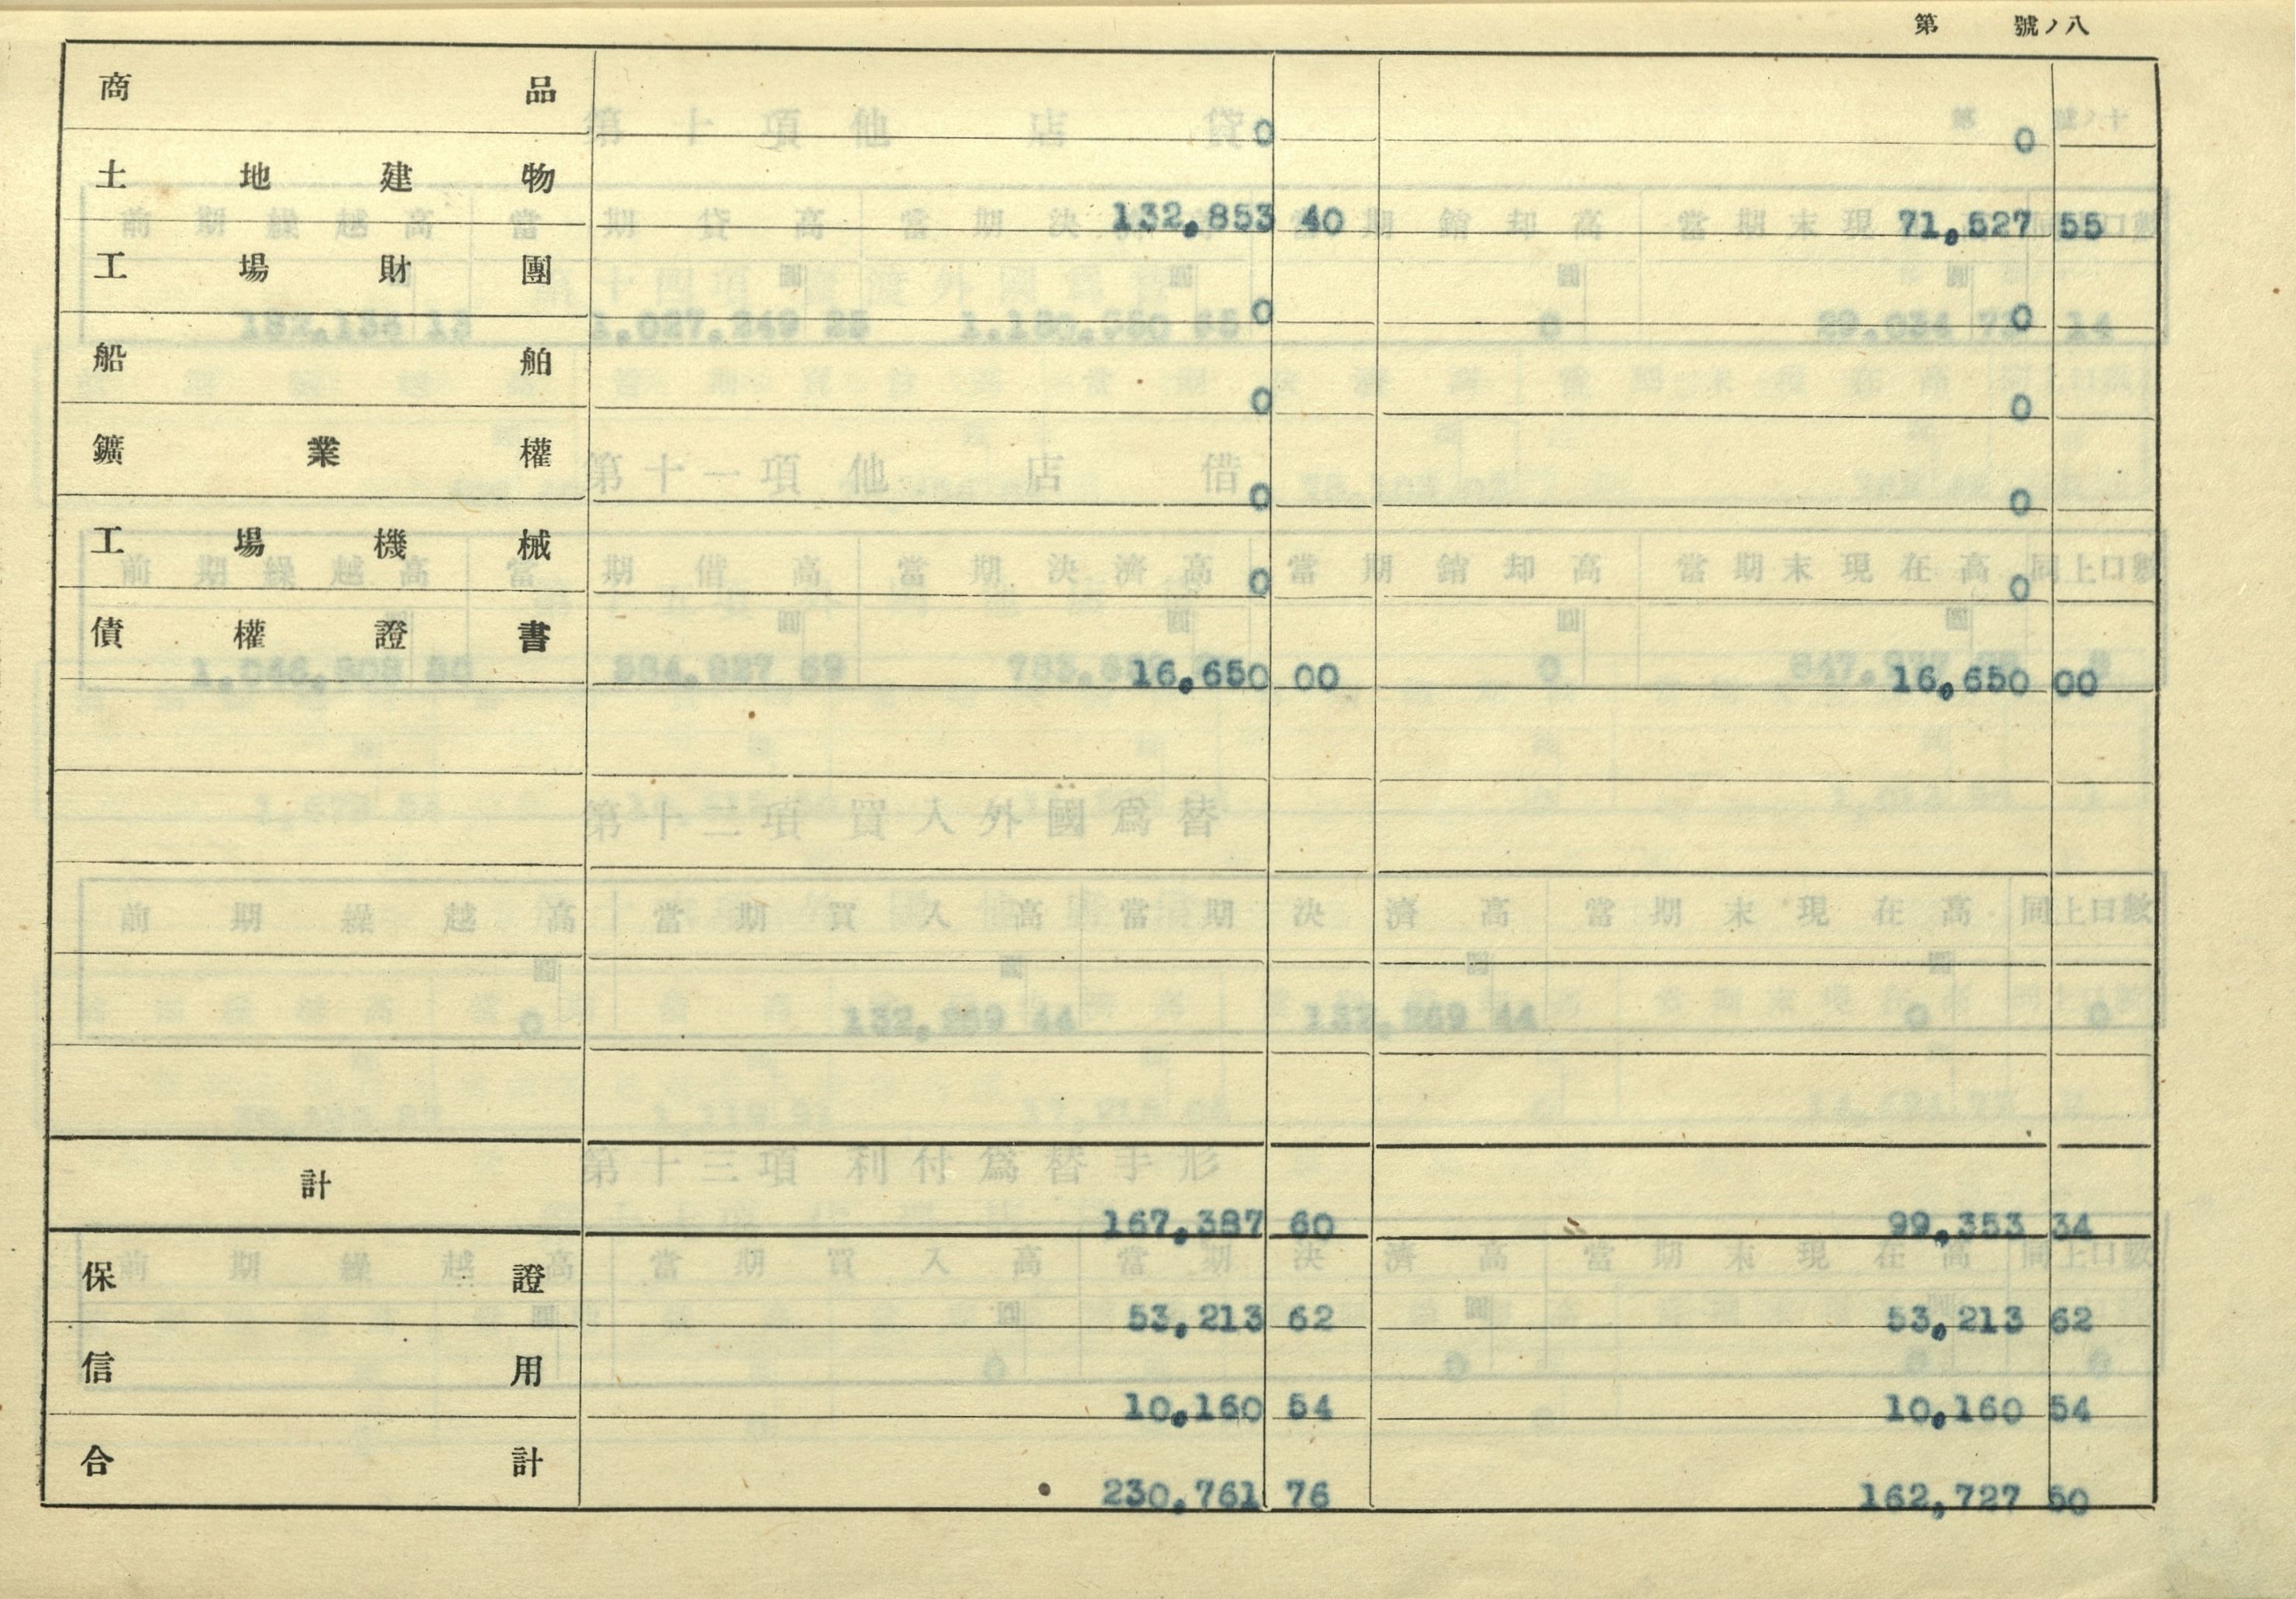 第 號ノ八
商品 0 0
土地建物 132,853 40 71,527 55
工場財團 0 0
船舶 0 0
鑛業權 0 0
工場機械 0 0
債權證書 16,650 00 16,650 00
計 167,387 60 99,353 34
保證 53,213 62 53,213 62
信用 10,160 54 10,160 54
合計 230,761 76 162,727 50